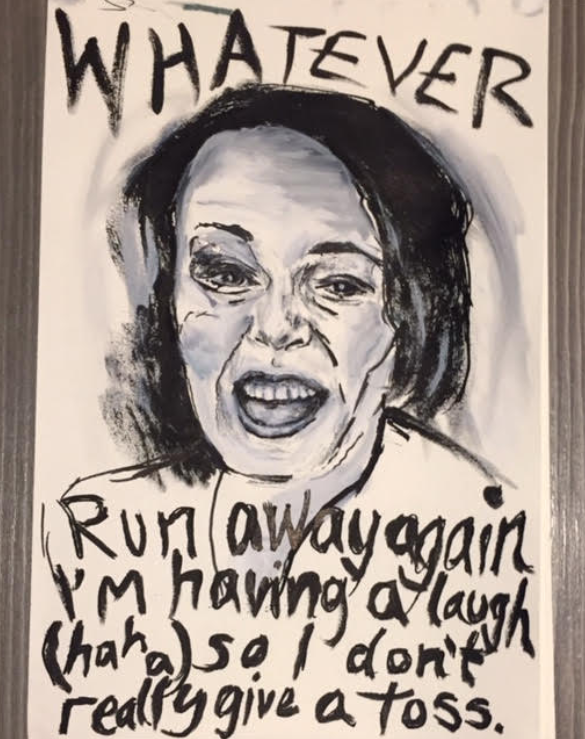 WHATEVER
Run away again
I'm having a laugh
(haha) so I don't
really give a toss.